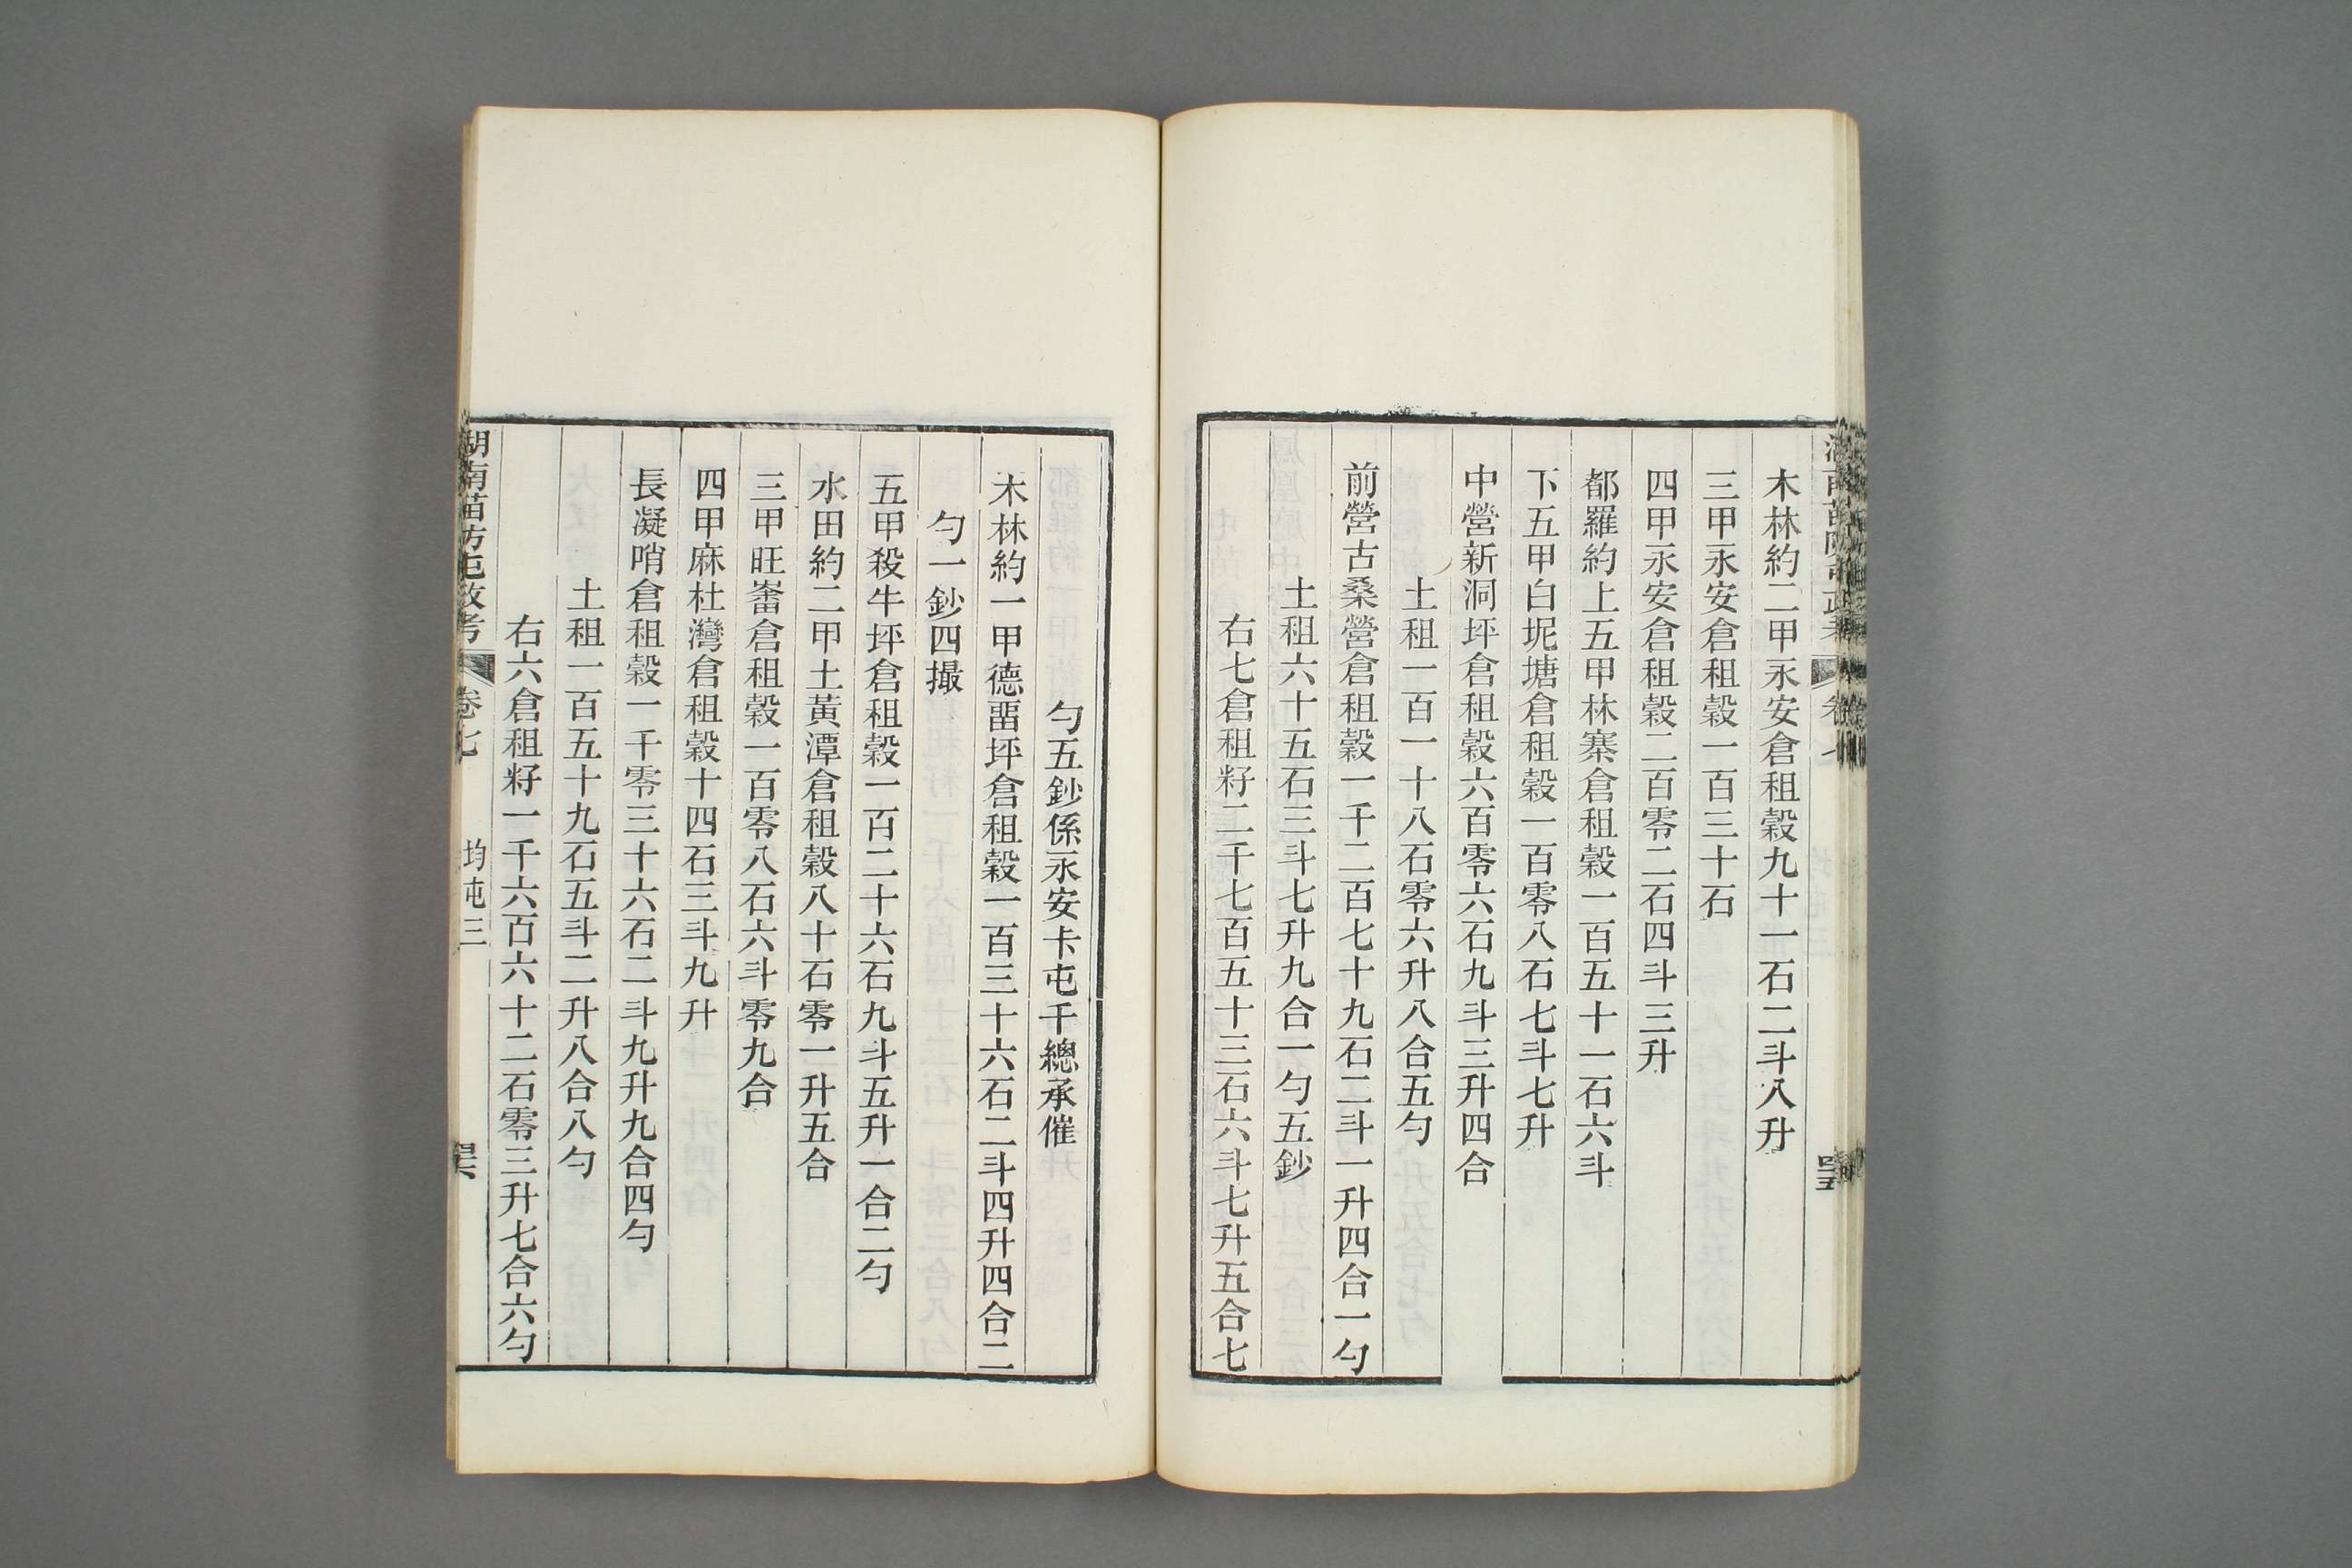 木林約二甲永安倉租穀九十一石二斗八升
三甲永安倉租穀一百三十石
四甲永安倉租穀二百零二石四斗三升
都羅約上五甲林寨倉租穀一百五十一石六斗
下五甲白坭塘倉租穀一百零八石七斗七升
中營新洞坪倉租穀六百零六石九斗三升四合
土租一百一十八石零六升八合五勺
前營古桑營倉租穀一千二百七十九石二斗一升四合一勺
土租六十五石三斗七升九合一勺五鈔
右七倉租籽二千七百五十三石六斗七升五合七
勺五鈔係永安卡屯千總承催
木林約一甲德畱坪倉租穀一百三十六石二斗四升四合二
勺一鈔四撮
五甲殺牛坪倉租穀一百二十六石九斗五升一合二勺
水田約二甲土黃潭倉租穀八十石零一升五合
三甲旺崙倉租穀一百零八石六斗零九合
四甲麻杜灣倉租穀十四石三斗九升
長凝哨倉租穀一千零三十六石二斗九升九合四勺
土租一百五十九石五斗二升八合八勺
右六倉租籽一千六百六十二石零三升七合六勺
湖南苗防屯政考 卷七 均屯三